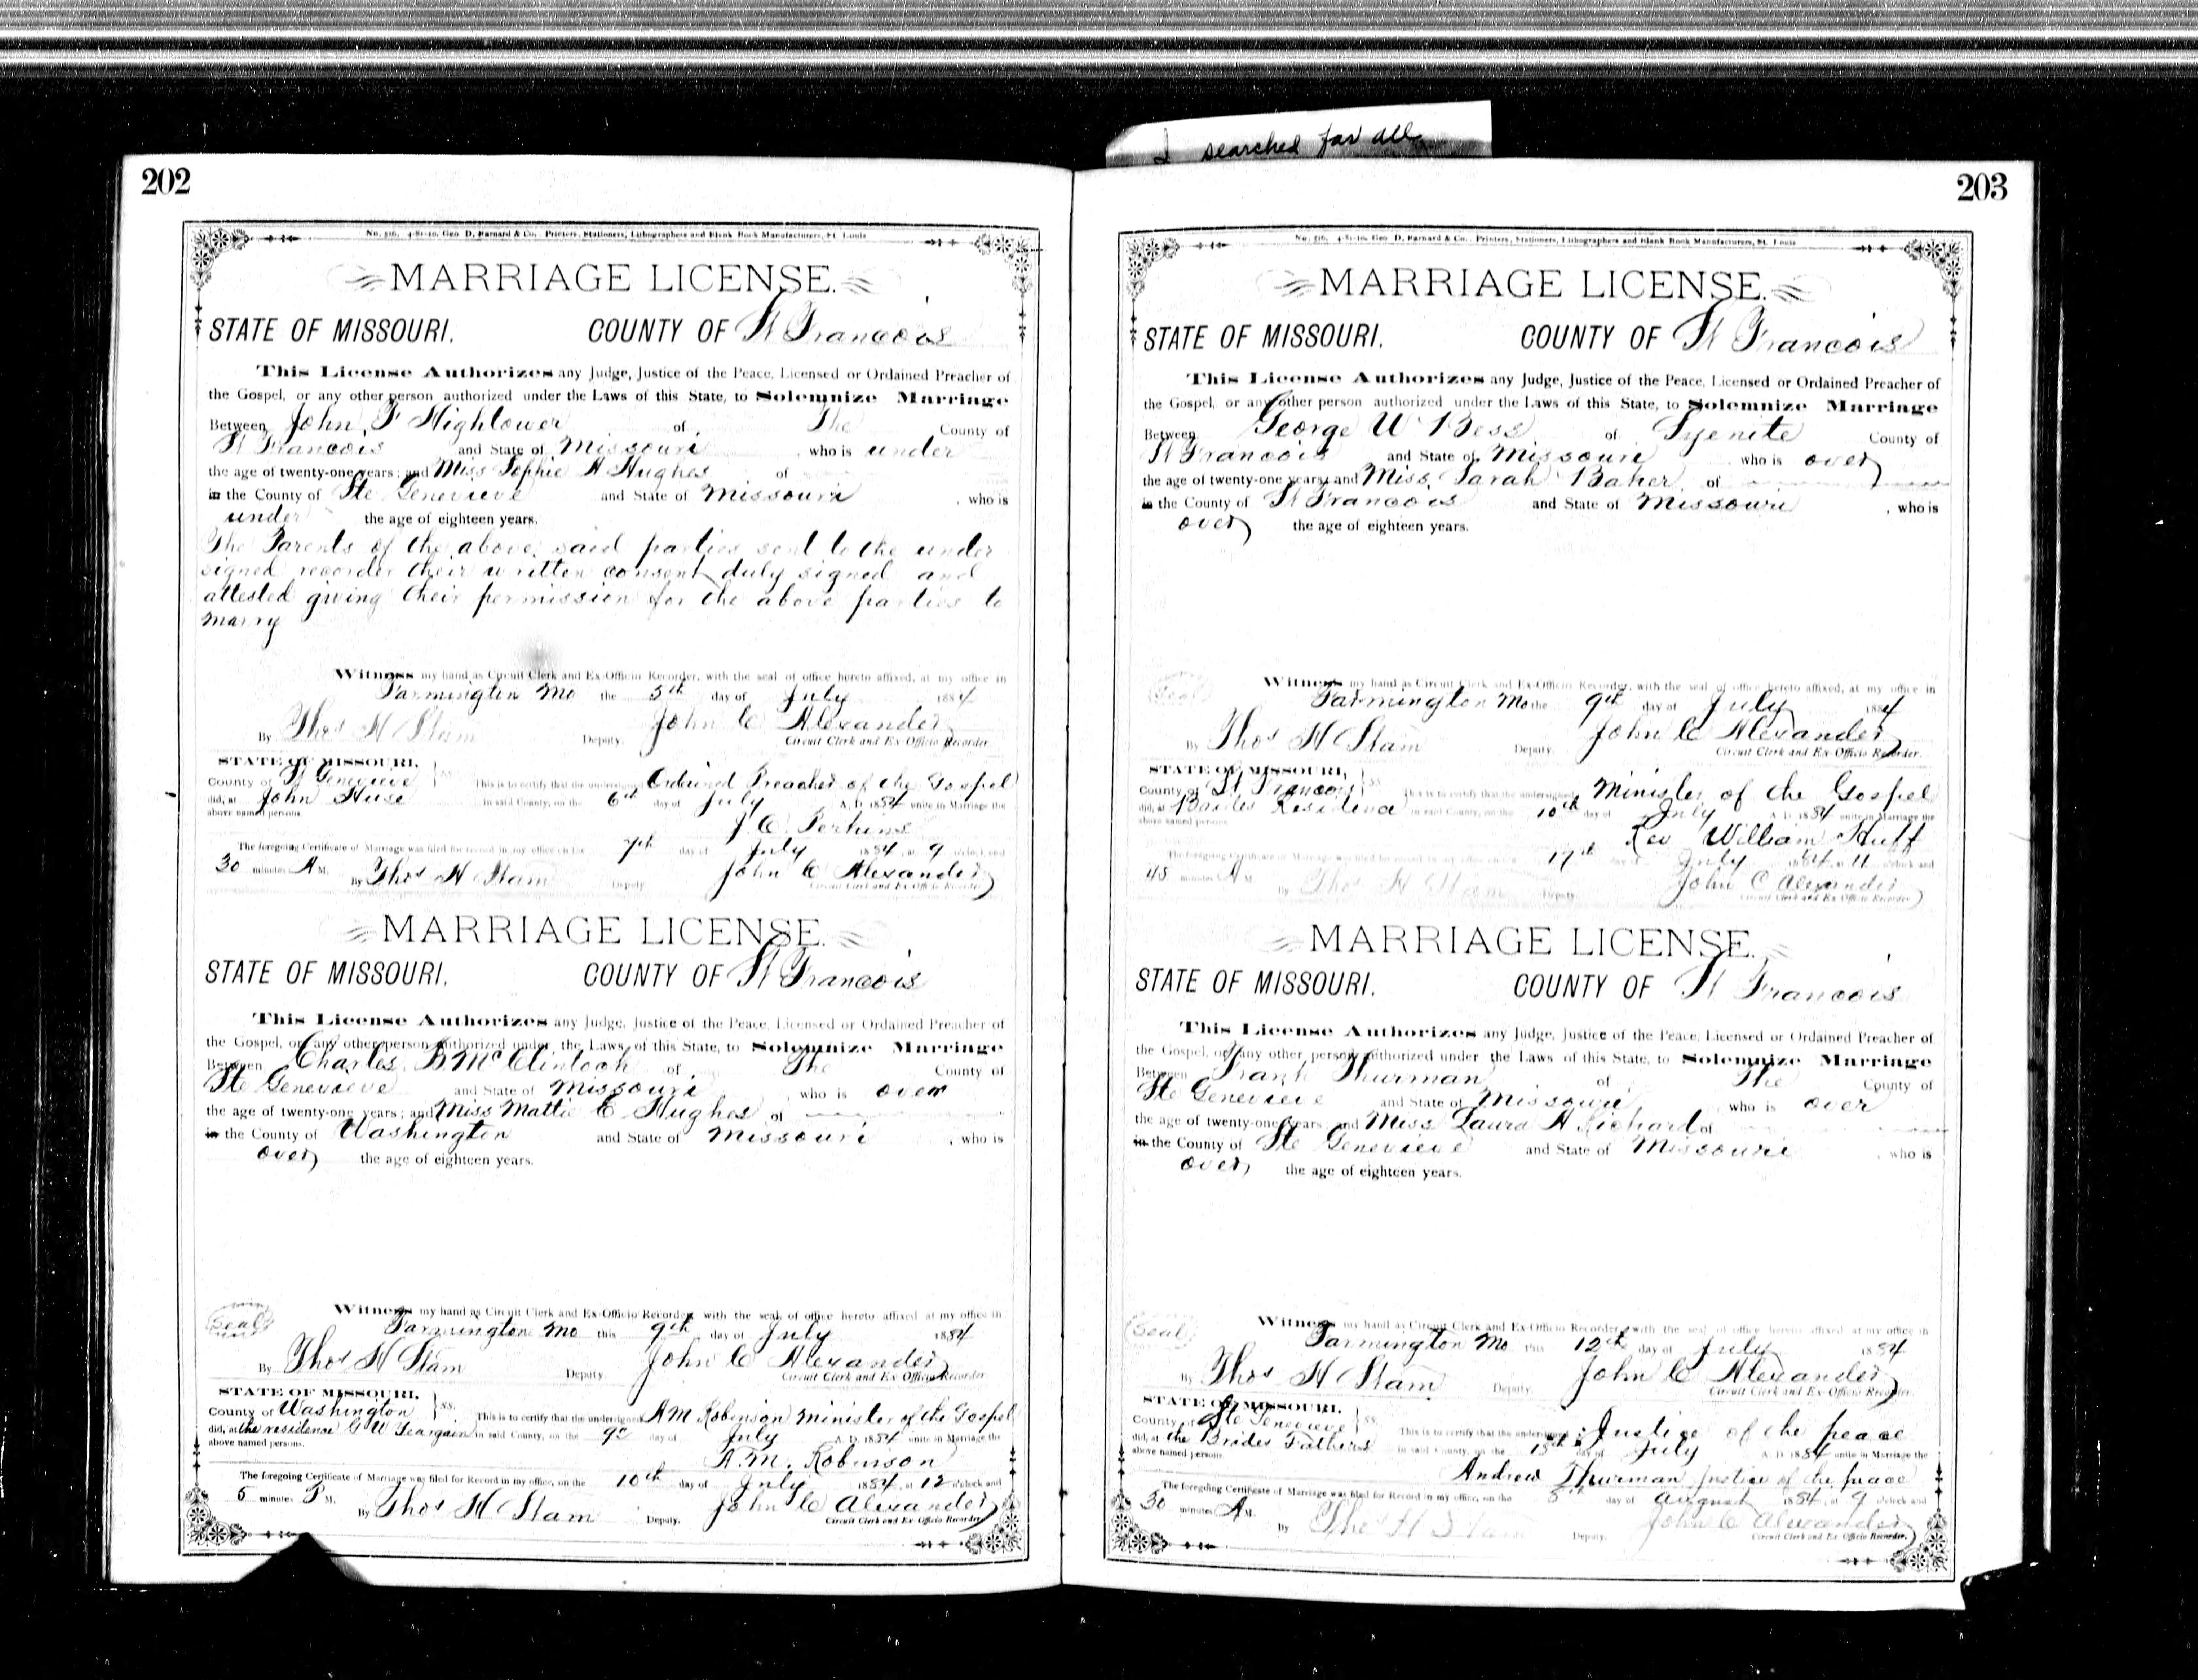 I searched for all
202
No. 516, 4-81-10. Geo D. Barnard & Co. Printers, Stationers, Lithographers and Blank Book Manufacturers, St. Louis
MARRIAGE LICENSE.
STATE OF MISSOURI. COUNTY OF St Francois
This License Authorizes any Judge, Justice of the Peace, Licensed or Ordained Preacher of
the Gospel, or any other person authorized under the Laws of this State, to Solemnize Marriage
Between John F Hightower of The County of
St Francois and State of Missouri, who is under
the age of twenty-one years; and Miss Sophie A Hughes of
in the County of Ste. Genevieve and State of Missouri, who is
under the age of eighteen years.
The Parents of the above said parties sent to the under
signed recorder their written consent duly signed and
attested giving their permission for the above parties to
marry
Witness my hand as Circuit Clerk and Ex-Officio Recorder, with the seal of office hereto affixed, at my office in
Farmington Mo the 5th day of July 1884
By Thos H Stam Deputy. John C Alexander
Circuit Clerk and Ex-Officio Recorder
STATE OF MISSOURI,
County of St Genevieve } SS. This is to certify that the undersigned Ordained Preacher of the Gospel
did, at John Huse in said County, on the 6th day of July A. D. 1884 unite in Marriage the
above named persons
J. C. Perkins
The foregoing Certificate of Marriage was filed for record in my office on the 7th day of July 1884, at 9 o'clock and
30 minutes A M. By Thos H Stam Deputy John C Alexander
Circuit Clerk and Ex Officio Recorder
MARRIAGE LICENSE.
STATE OF MISSOURI. COUNTY OF St Francois
This License Authorizes any Judge, Justice of the Peace, Licensed or Ordained Preacher of
the Gospel, or any other person authorized under the Laws of this State, to Solemnize Marriage
Between Charles B. McClintock of The County of
Ste Genevieve and State of Missouri, who is over
the age of twenty-one years; and Miss Mattie C Hughes of
in the County of Washington and State of Missouri, who is
over the age of eighteen years.
Seal
Witness my hand as Circuit Clerk and Ex-Officio Recorder, with the seal of office hereto affixed at my office in
Farmington Mo this 9th day of July 1884
By Thos H Stam Deputy. John C Alexander
Circuit Clerk and Ex Officio Recorder
STATE OF MISSOURI,
County of Washington } SS. This is to certify that the undersigned A M Robinson minister of the Gospel
did, at the residence G W Yeargain in said County, on the 9th day of July A. D. 1884 unite in Marriage the
above named persons.
A. M. Robinson
The foregoing Certificate of Marriage was filed for Record in my office, on the 10th day of July 1884, at 12 o'clock and
5 minutes P M. By Thos H Stam Deputy. John C Alexander
Circuit Clerk and Ex Officio Recorder
203
No. 516, 4-81-10. Geo D. Barnard & Co., Printers, Stationers, Lithographers and Blank Book Manufacturers, St. Louis
MARRIAGE LICENSE.
STATE OF MISSOURI. COUNTY OF St Francois
This License Authorizes any Judge, Justice of the Peace, Licensed or Ordained Preacher of
the Gospel, or any other person authorized under the Laws of this State, to Solemnize Marriage
Between George W Bess of Syenite County of
St Francois and State of Missouri who is over
the age of twenty-one years; and Miss Sarah Baker of
in the County of St Francois and State of Missouri, who is
over the age of eighteen years.
Seal
Witness my hand as Circuit Clerk and Ex-Officio Recorder, with the seal of office hereto affixed, at my office in
Farmington Mo the 9th day of July 1884
By Thos H Stam Deputy John C Alexander
Circuit Clerk and Ex-Officio Recorder.
STATE OF MISSOURI,
County of St. Francois } SS. This is to certify that the undersigned Minister of the Gospel
did, at Brides Residence in said County, on the 10th day of July A. D. 1884 unite in Marriage the
above named persons
Rev William Huff
The foregoing Certificate of Marriage was filed for record in my office on the 17th day of July 1884 at 11 o'clock and
45 minutes A M. By Thos H Stam Deputy. John C Alexander
Circuit Clerk and Ex Officio Recorder
MARRIAGE LICENSE.
STATE OF MISSOURI. COUNTY OF St Francois
This License Authorizes any Judge, Justice of the Peace, Licensed or Ordained Preacher of
the Gospel, or any other person authorized under the Laws of this State, to Solemnize Marriage
Between Frank Thurman of The County of
Ste Genevieve and State of Missouri, who is over
the age of twenty-one years and Miss Laura A Richard of
in the County of Ste Genevieve and State of Missouri, who is
over the age of eighteen years.
Seal
Witness my hand as Circuit Clerk and Ex-Officio Recorder, with the seal of office hereto affixed at my office in
Farmington Mo this 12th day of July 1884
By Thos H Stam Deputy. John C Alexander
Circuit Clerk and Ex-Officio Recorder.
STATE OF MISSOURI,
County of Ste Genevieve } SS. This is to certify that the undersigned Justice of the peace
did, at the Brides Fathers in said County, on the 13th day of July A. D. 1884 unite in Marriage the
above named persons
Andrew Thurman Justice of the peace
The foregoing Certificate of Marriage was filed for Record in my office, on the 8th day of August 1884, at 9 o'clock and
30 minutes A M. By Thos H Stam Deputy. John C Alexander
Circuit Clerk and Ex Officio Recorder.